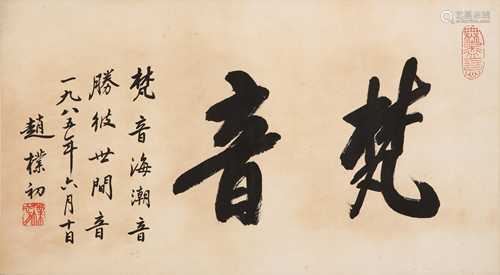 梵音
梵音海潮音
勝彼世間音
一九八五年六月十日
趙樸初